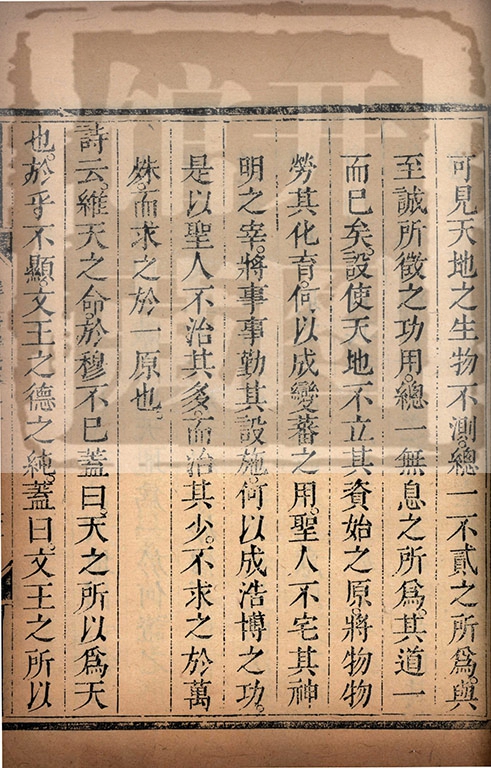 可見天地之生物不測。總一不貳之所爲。與
至誠所徵之功用。總一無息之所爲。其道一
而已矣。設使天地不立其資始之原。將物物
勞其化育。何以成變蕃之用。聖人不宅其神
明之宰。將事事勤其設施。何以成浩博之功。
是以聖人不治其多。而治其少。不求之於萬
殊。而求之於一原也。
詩云。維天之命。於穆不已。蓋曰。天之所以爲天
也。於乎不顯。文王之德之純。蓋曰。文王之所以